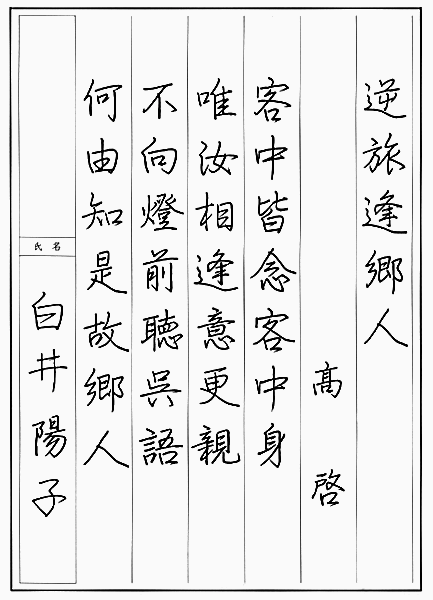 逆旅逢鄉人
高啓
客中皆念客中身
唯汝相逢意更親
不向燈前聽呉語
何由知是故鄉人
氏名
白井陽子